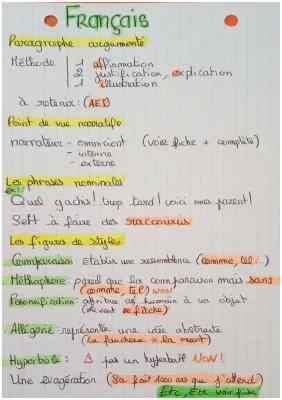 Français
Paragraphe argumenté
Méthode 1 affirmation
2 justification, explication
1 illustration
à retenir: (AEI)
Point de vue narratif
narrateur - omniscient (voir fiche + complète)
- interne
- externe
Les phrases nominales
ex:
Quel gachis! trop tard! voici mes parent!
Sert à faire des raccourcis
Les figures de styles
Comparaison: établir une ressemblance (comme, tel...)
Métaphore: pareil que la comparaison mais sans
(comme, tel) NON!
Personnification: attribue de humain à un objet
(le vent se fâche)
Allégorie: représenter une idée abstraite
(La faucheuse = la mort)
Hyperbole: ⚠ pas un hyperball NON!
Une exagération (Sa fait 1000 ans que j'attend)
Etc, Etc voir fiche